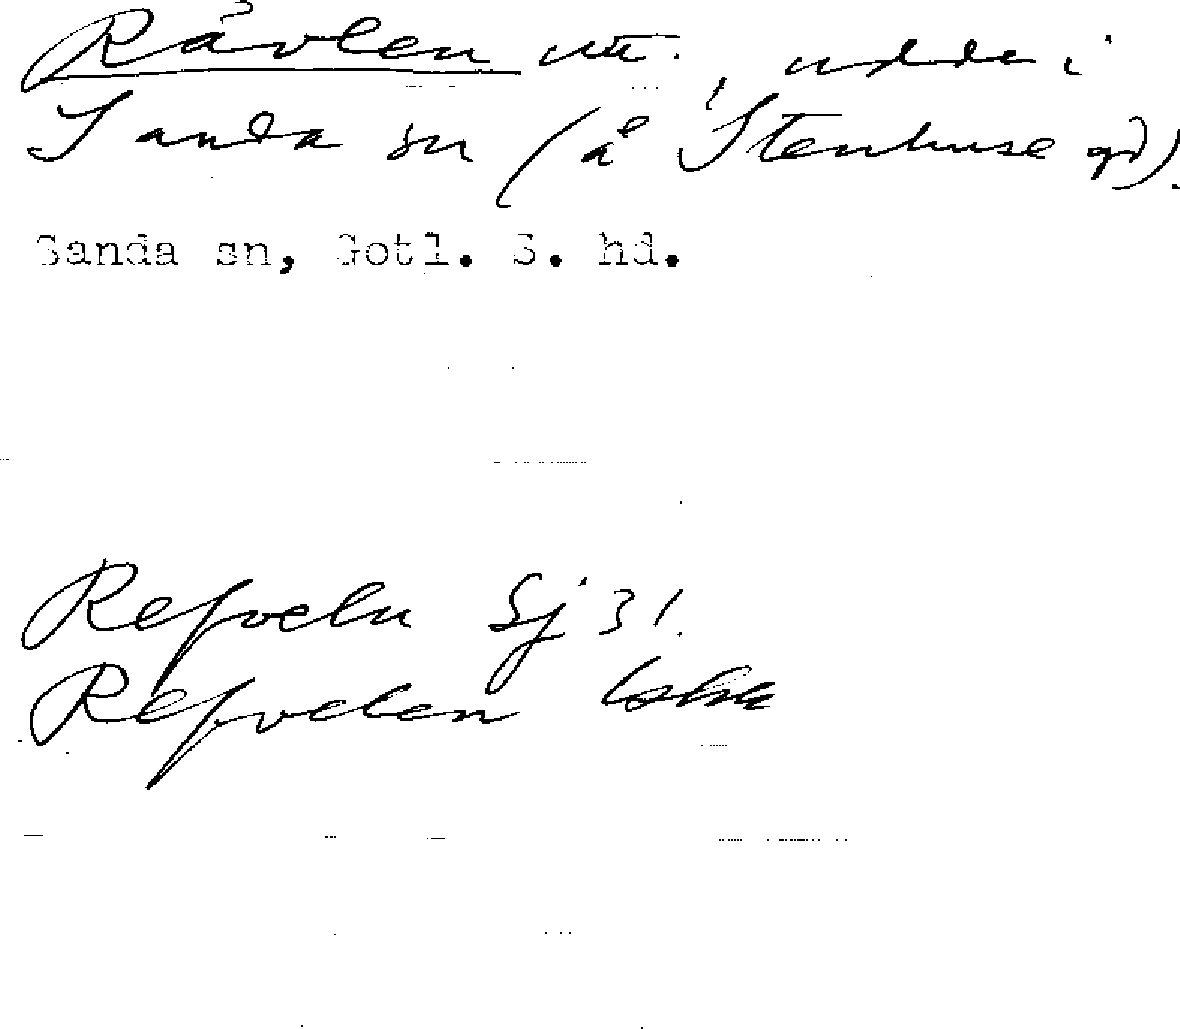 Rävlen , udde i
Sanda sn (å Stenhuse gd).
Sanda sn, Gotl. S. hd.
Refveln Sj 31.
Refvelen